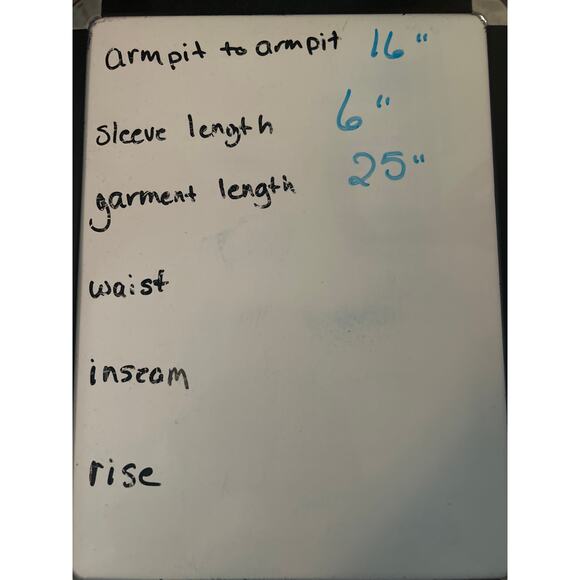 armpit to armpit 16"
sleeve length 6"
garment length 25"
waist
inseam
rise